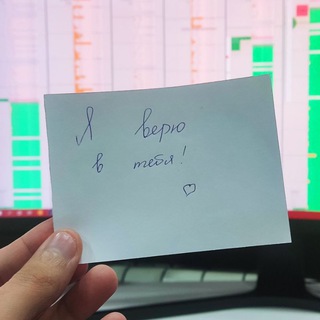 Я верю
в тебя!